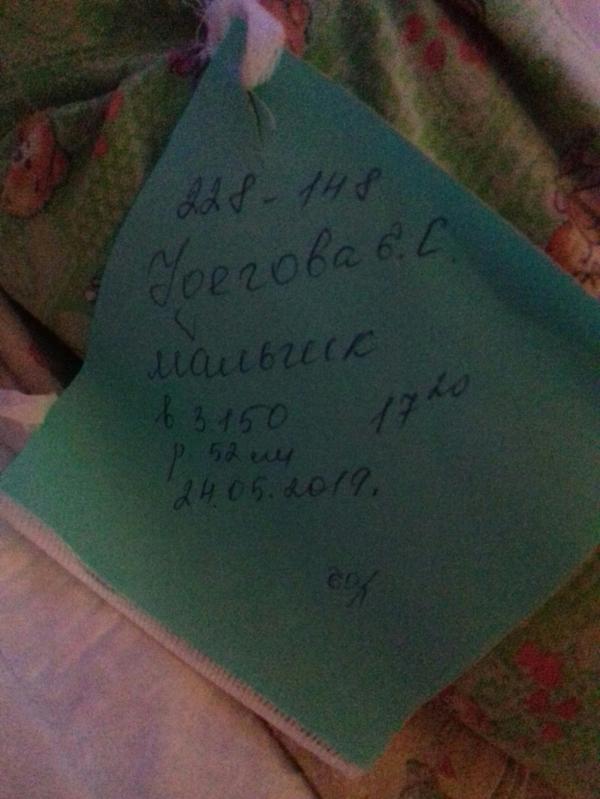 228-148
Е.С.
мальчик
в 3150 17 20
р. 52 см
24.05.2019.